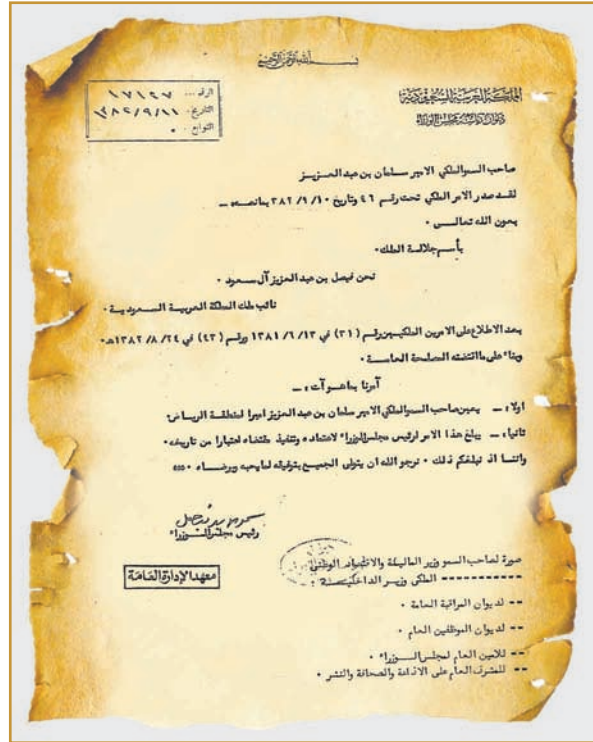 بسم الله الرحمن الرحيم
المملكة العربية السعودية
ديوان رئاسة مجلس الوزراء
الرقم ... ١٧١٤٧
التاريخ ١٣٨٢/٩/١١
التوابع
صاحب السمو الملكي الامير سلمان بن عبد العزيز
لقد صدر الامر الملكي تحت رقم ٤٦ وتاريخ ٣٨٢/٩/١٠ بمانصه :ــ
بعون الله تعالى ٠
بأسم جلالة الملك ٠
نحن فيصل بن عبد العزيز آل سعود ٠
نائب ملك المملكة العربية السعودية ٠
بعد الاطلاع على الامرين الملكيين رقم ( ٣١ ) في ١٣٨١/٦/١٣ ورقم ( ٤٣ ) في ١٣٨٢/٨/٢٤هـ ٠
وبناء على مااقتضته المصلحة العامة ٠
أمرنا بماهو آت :ــ
اولا :ــ يعين صاحب السمو الملكي الامير سلمان بن عبد العزيز اميرا لمنطقة الرياض ٠
ثانيا :ــ يبلغ هذا الامر لرئيس مجلس الوزراء لاعتماده وتنفيذ مقتضاه اعتبارا من تاريخه ٠
واننا اذ نبلغكم ذلك ٠ نرجو الله ان يتولى الجميع بتوفيقه لمايحبه ويرضاه ٠
رئيس مجلس الوزراء
معهد الإدارة العامة
صورة لصاحب السمو وزير المالية والاقتصاد الوطني
ــ ــ ــ ــ الملكي وزير الداخلية ٠
ــ ــ لديوان المراقبة العامة ٠
ــ ــ لديوان الموظفين العام ٠
ــ ــ للامين العام لمجلس الوزراء ٠
ــ ــ للمشرف العام على الاذاعة والصحافة والنشر ٠